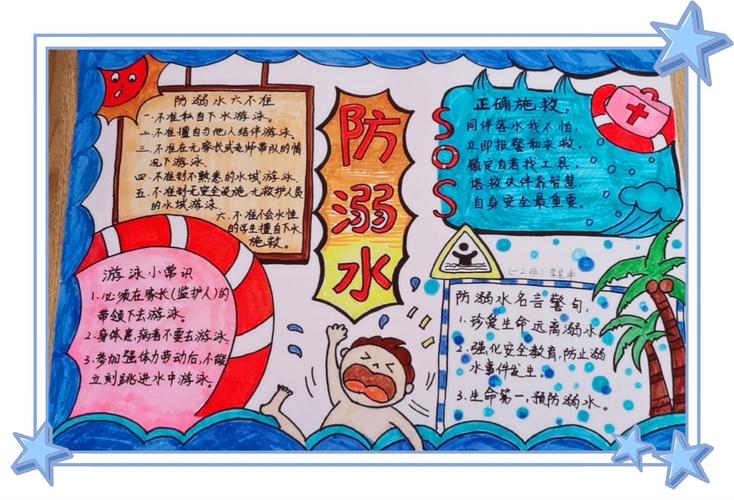 防溺水六不准
一.不准私自下水游泳。
二.不准擅自与他人结伴游泳。
三.不准在无家长或老师带队的情
况下游泳.
四.不准到不熟悉的水域游泳.
五.不准到无安全设施.无救护人员
的水域游泳
六.不准不会水性
的学生擅自下水
施救。
防
溺
水
SOS
正确施救。
同伴落水我不怕,
立即报警和求救。
镇定自若找工具,
搭救伙伴靠智慧.
自身安全最重要。
游泳小常识
1.必须在家长(监护人)的
带领下去游泳.
2.身体患病者不要去游泳.
3.参加强体力劳动后,不能
立刻跳进水中游泳.
(一2班)
防溺水名言警句,
1.珍爱生命远离溺水.
2.强化安全教育,防止溺
水事件发生。
3.生命第一,预防溺水。